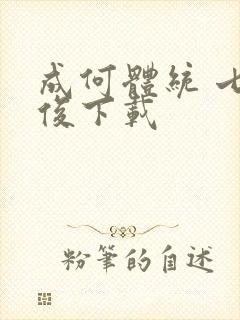 成何體統 七
俊下載
粉筆的自述